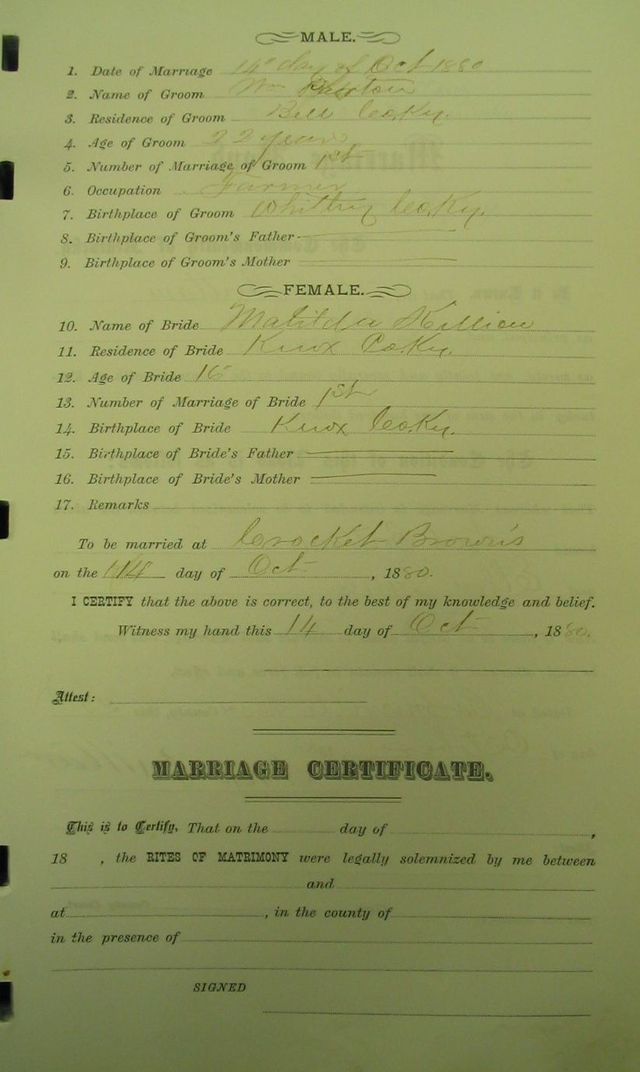 MALE.
1. Date of Marriage 14" day of Oct 1880
2. Name of Groom Wm
3. Residence of Groom Bell Co Ky.
4. Age of Groom 22 years
5. Number of Marriage of Groom 1st
6. Occupation Farmer
7. Birthplace of Groom Whitley Co. Ky.
8. Birthplace of Groom's Father
9. Birthplace of Groom's Mother
FEMALE.
10. Name of Bride Matilda Killion
11. Residence of Bride Knox Co Ky.
12. Age of Bride
13. Number of Marriage of Bride 1st
14. Birthplace of Bride Knox Co Ky.
15. Birthplace of Bride's Father
16. Birthplace of Bride's Mother
17. Remarks
To be married at Crocket Brown's
on the 14 day of Oct , 1880.
I CERTIFY that the above is correct, to the best of my knowledge and belief.
Witness my hand this 14 day of Oct , 1880.
Attest:
MARRIAGE CERTIFICATE.
This is to Certify, That on the day of ,
18 , the RITES OF MATRIMONY were legally solemnized by me between
and
at , in the county of
in the presence of
SIGNED